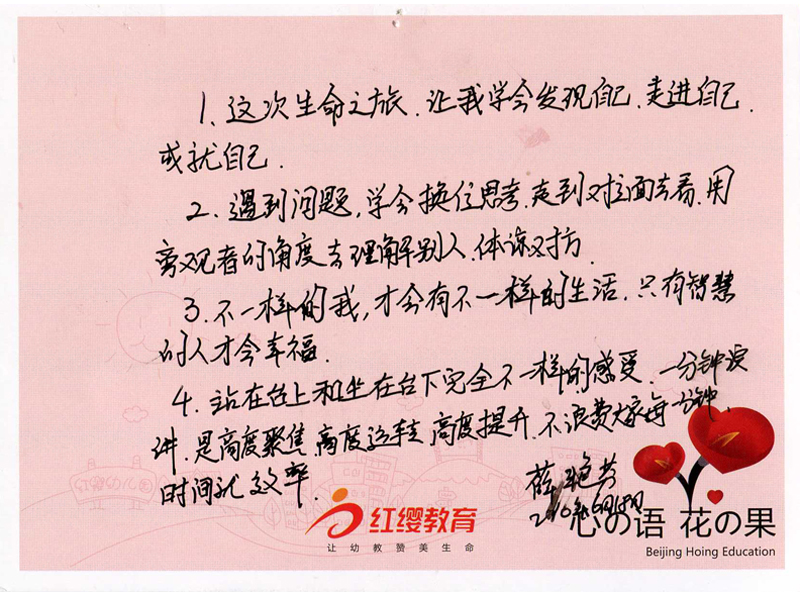 1. 这次生命之旅.让我学会发现自己.走进自己.
成就自己.
2. 遇到问题,学会换位思考.走到对立面去看.用
旁观者的角度去理解别人.体谅对方.
3. 不一样的我,才会有不一样的生活.只有智慧
的人才会幸福.
4. 站在台上和坐在台下完全不一样的感受.一分钟演
讲.是高度聚焦.高度运转.高度提升.不浪费大家每一分钟.
时间就效率.
薛艳芳
2010年
红缨幼儿园
红缨教育
让幼教赞美生命
心の语 花の果
Beijing Hoing Education